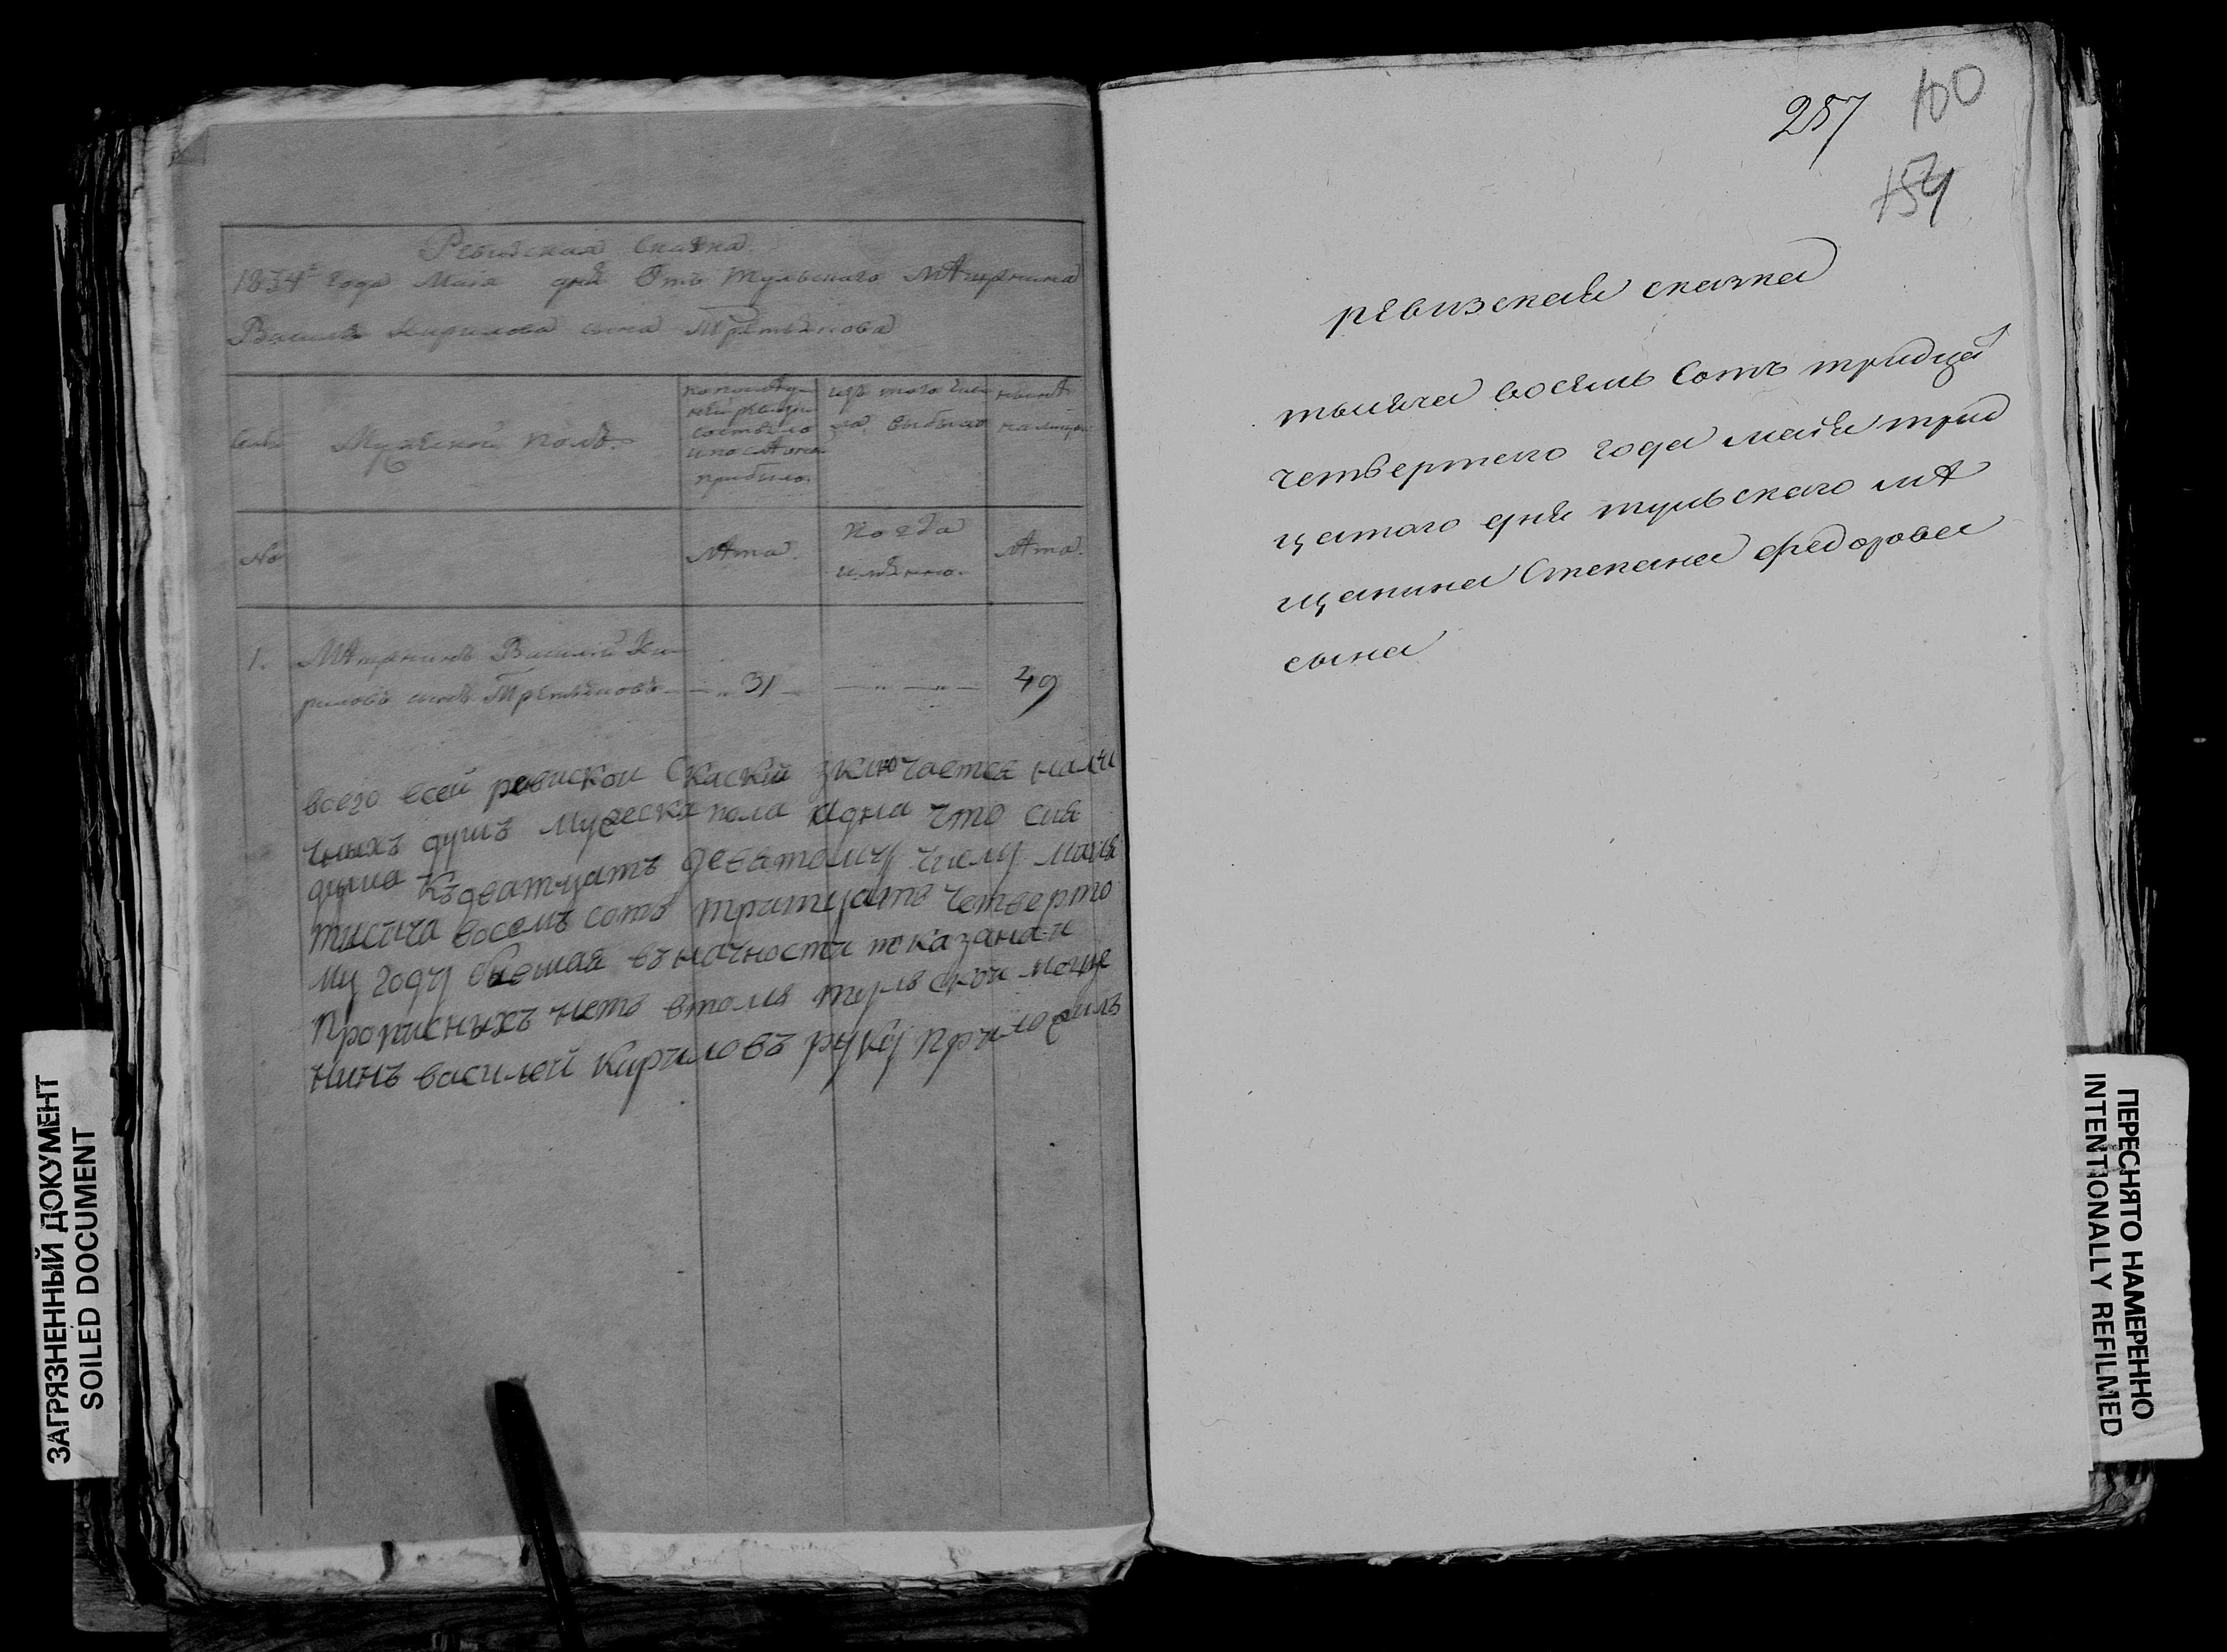 Ревизская Сказка
1834го года Маія дня Отъ Тульскаго Мѣщанина
Василія Кирилова сына Третьякова
Мужеской полъ.
по послѣд-
ней ревизіи
состояло
и послѣ она
прибыло.
изъ того чис
ла выбыло
нынѣ
на лицо
№
Лѣта.
Когда
имянно.
Лѣта.
1. Мѣщанинъ Василій Ки-
риловъ сынъ Третьяковъ — 31 — — „ — „ — 49
всего всей ревискои Скаски зключается нали
чныхъ душъ Мужеска пола адна что сия
душа Къ дватцать деватому числу маия
тысича восемъ сотъ тритцать четверто
му году бывшая въ наличности показана и
прописныхъ нетъ втомъ тульской меща
нинъ василей Кириловъ руку приложилъ
257 100
154
ревизская сказка
тысяча восемь Сотъ тридца
четвертого года маія трид
цатого дня тульскаго мѣ
щанина Степана Федорова
сына
ЗАГРЯЗНЕННЫЙ ДОКУМЕНТ
SOILED DOCUMENT
ПЕРЕСНЯТО НАМЕРЕННО
INTENTIONALLY REFILMED